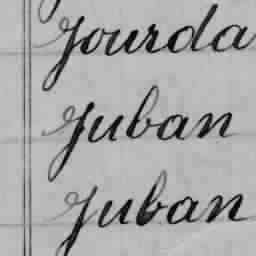 Jourda
Juban
Juban